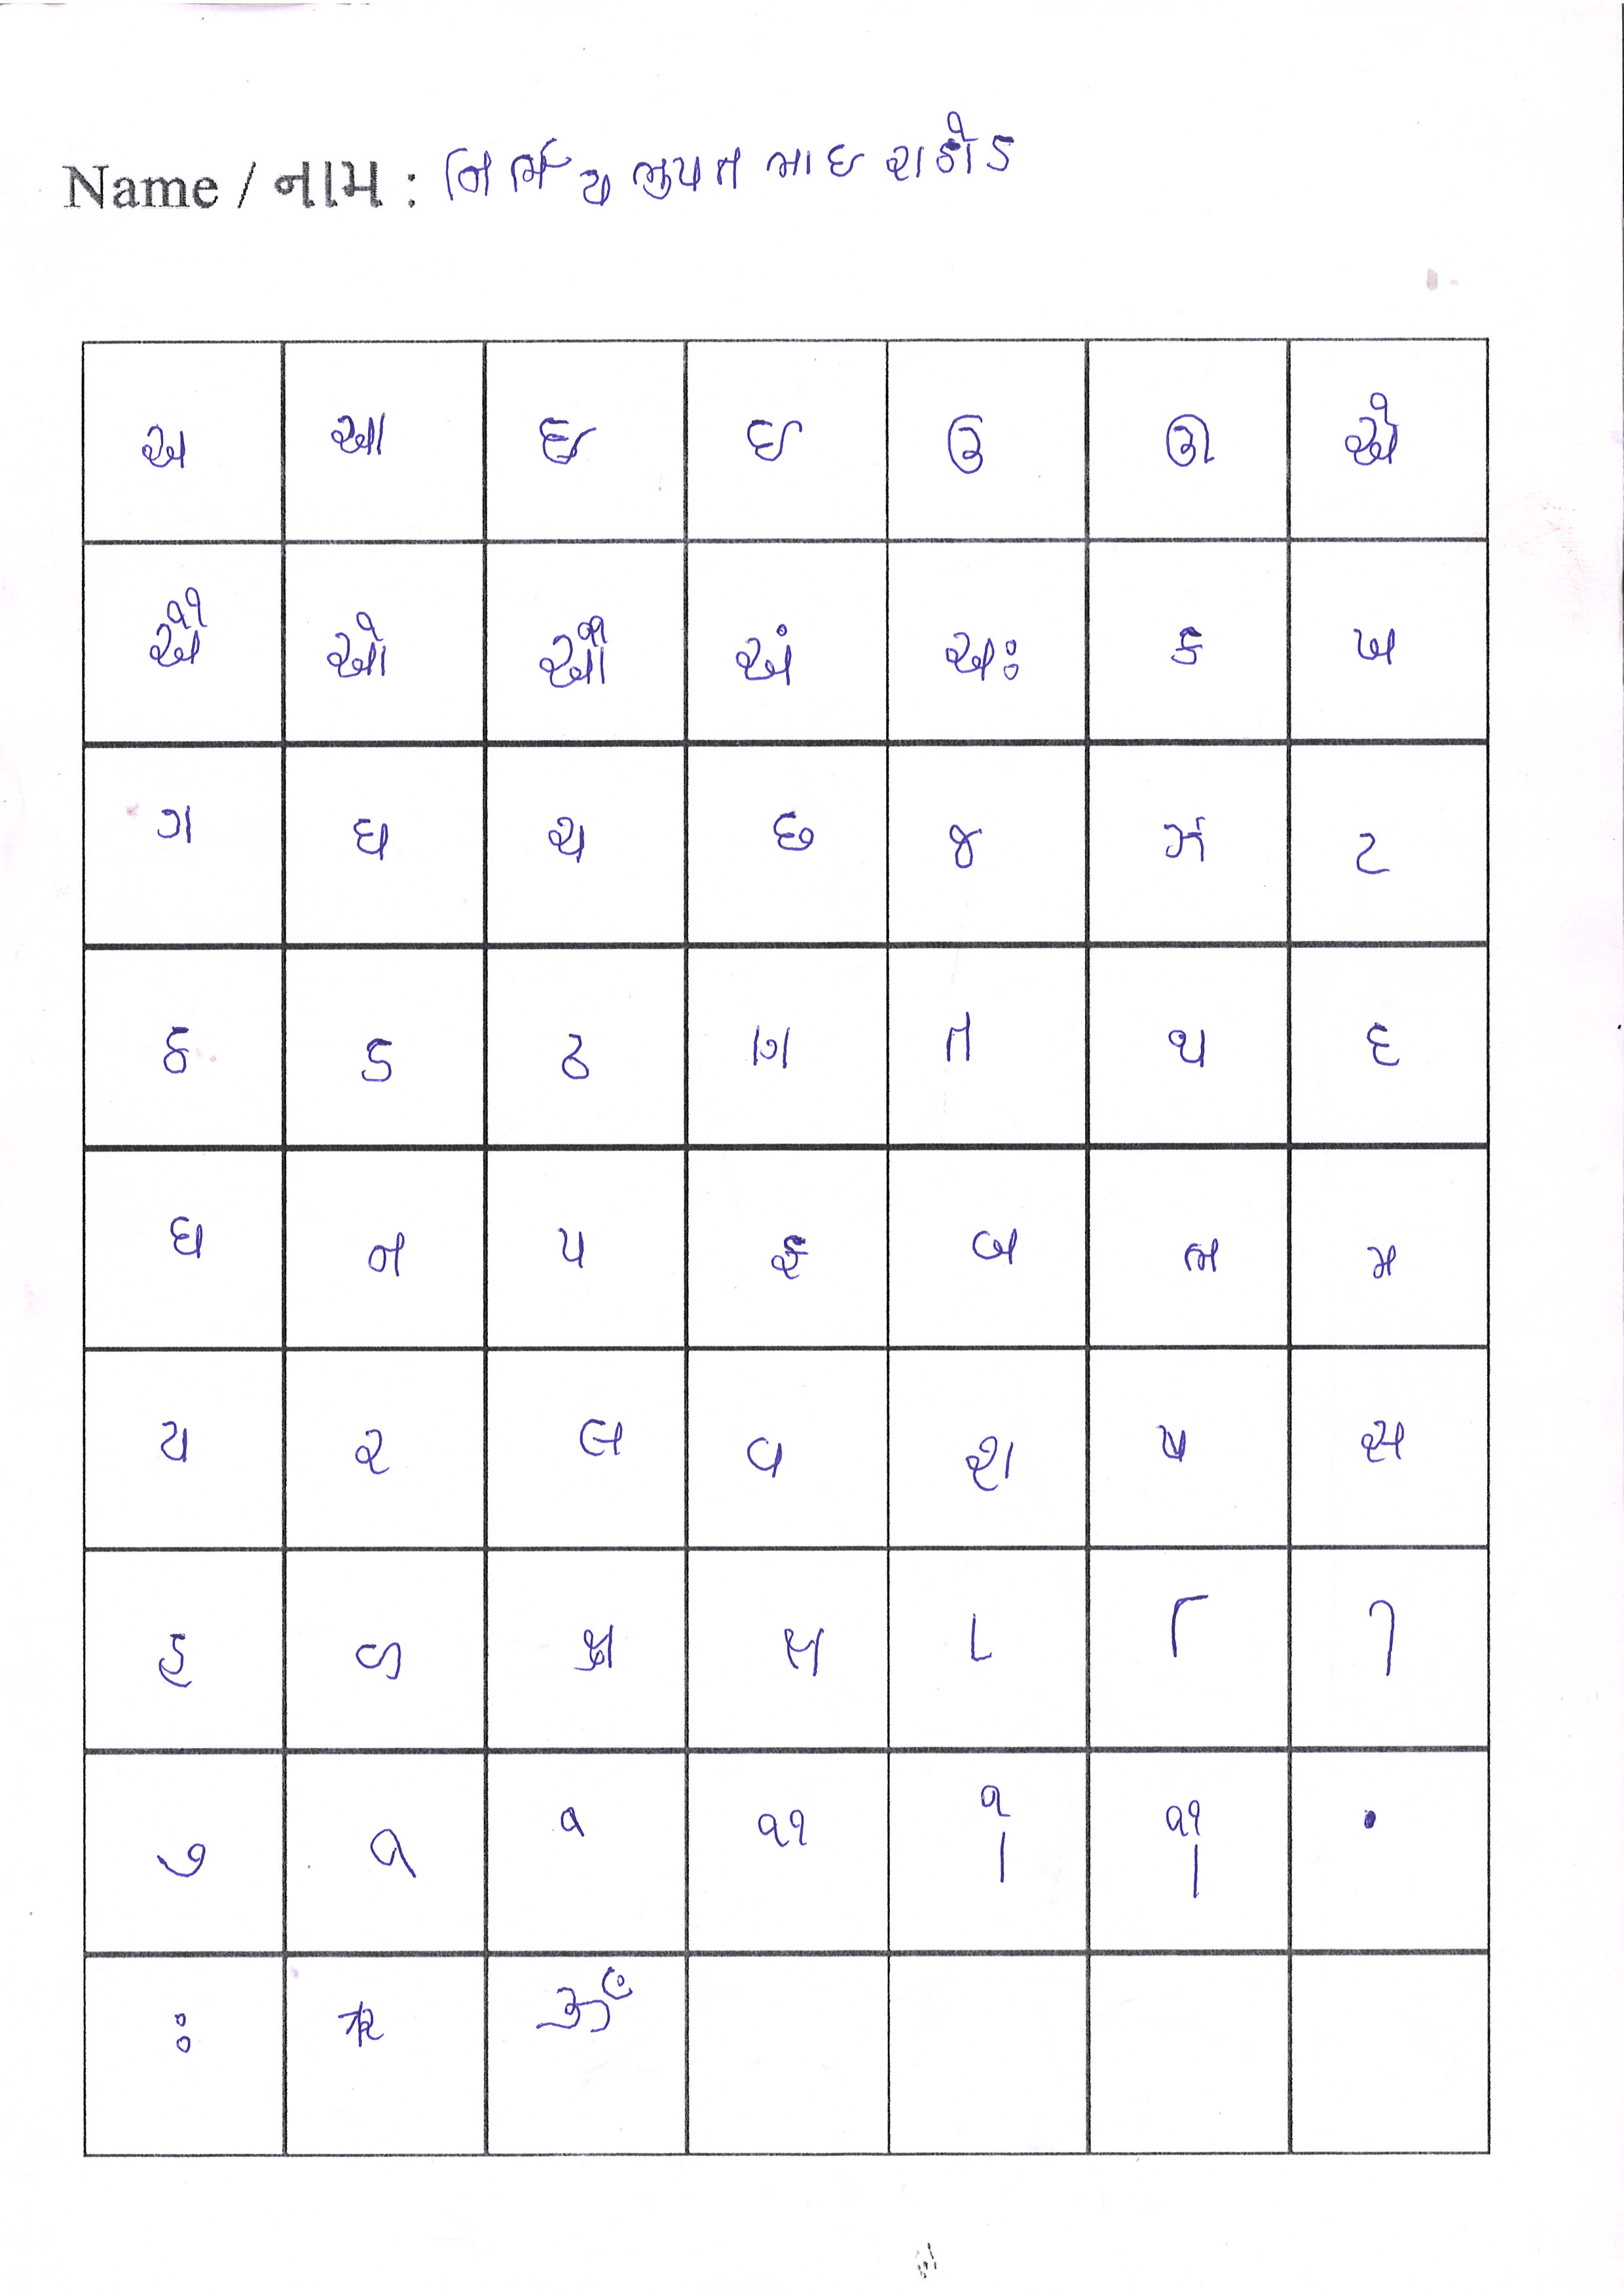 Name / નામ : નિર્ભય ભુપત ભાઇ રાઠોડ
અ આ ઇ ઈ ઉ ઊ એ
ઐ ઓ ઔ અં અઃ ક ખ
ગ ઘ ચ છ જ ઝ ટ
ઠ ડ ઢ ણ ત થ દ
ધ ન પ ફ બ ભ મ
ય ર લ વ શ ષ સ
હ ળ ક્ષ ા િ ી
ુ ૂ ે ૈ ો ૌ ં
ઃ ઋ ૐ